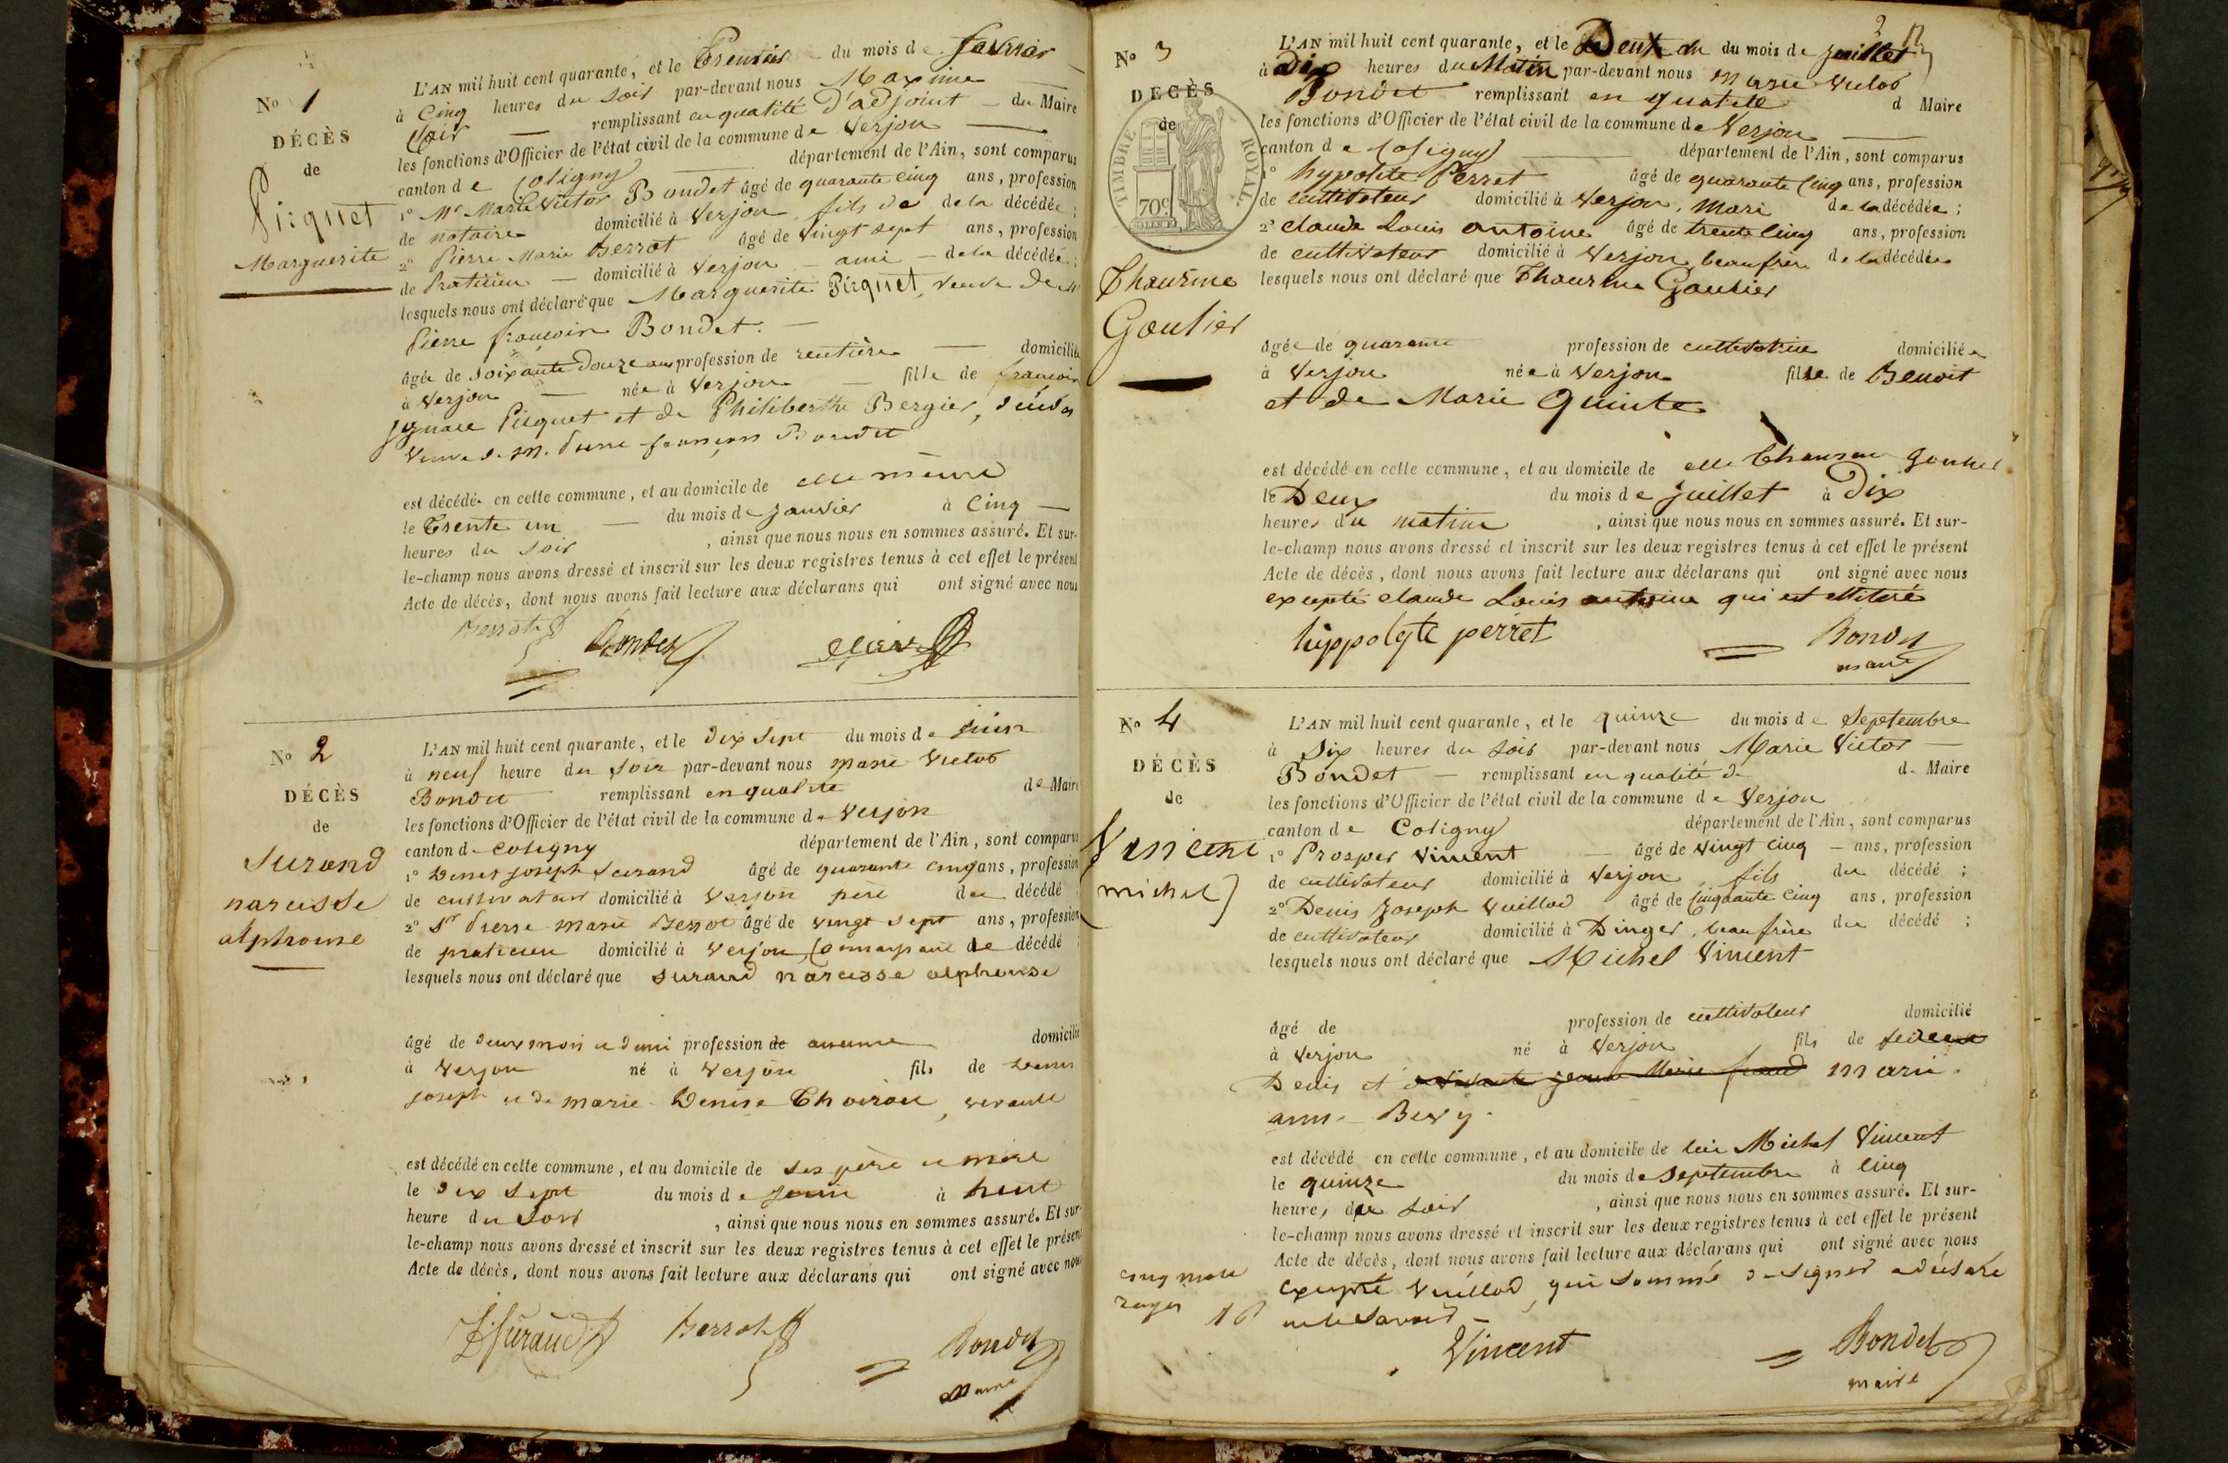 No 1
DÉCÈS
de
Picquet
Marguerite
L'AN mil huit cent quarante, et le Premier du mois de février
à Cinq heures du soir par-devant nous Maxime
Clair remplissant en qualité d'adjoint du Maire
les fonctions d'Officier de l'état civil de la commune de Verjon
canton de Coligny département de l'Ain, sont comparus
1º Mr Marie Victor Bondet âgé de quarante cinq ans, profession
de notaire domicilié à Verjon, fils de de la décédée;
2º Pierre Marie Berrot âgé de vingt sept ans, profession
de Praticien domicilié à Verjon ami de la décédée;
lesquels nous ont déclaré que Marguerite Picquet, veuve de Mr
Pierre françois Bondet.
âgée de soixante Douze ans profession de rentière domiciliée
à Verjon née à Verjon fille de françois
Picquet et de Philiberthe Bergier,
veuve de M. Pierre françois Bondet
est décédée en cette commune, et au domicile de elle même
le Trente un du mois de janvier à Cinq
heures du soir, ainsi que nous nous en sommes assuré. Et sur-
le-champ nous avons dressé et inscrit sur les deux registres tenus à cet effet le présent
Acte de décès, dont nous avons fait lecture aux déclarans qui ont signé avec nous
Berrot Bondet Clair
No 2
DÉCÈS
de
Surand
narcisse
alphonse
L'AN mil huit cent quarante, et le dix sept du mois de juin
à neuf heure du soir par-devant nous marie Victor
Bondet remplissant en qualité de Maire
les fonctions d'Officier de l'état civil de la commune de Verjon
canton de Coligny département de l'Ain, sont comparus
1º Denis joseph Surand âgé de quarante cinq ans, profession
de cultivateur domicilié à Verjon père du décédé
2º Sr Pierre marie Berrot âgé de vingt sept ans, profession
de praticien domicilié à Verjon, de décédé
lesquels nous ont déclaré que Surand narcisse alphonse
âgé de deux mois et demi profession de aucune domicilié
à Verjon né à Verjon fils de Denis
joseph et de marie Denise
est décédé en cette commune, et au domicile de ses père et mère
le dix sept du mois de juin à huit
heure du soir, ainsi que nous nous en sommes assuré. Et sur-
le-champ nous avons dressé et inscrit sur les deux registres tenus à cet effet le présent
Acte de décès, dont nous avons fait lecture aux déclarans qui ont signé avec nous
Surand Berrot Bondet
maire
No 3
DECÈS
de
TIMBRE ROYAL
70c
Thaurine
Goutier
L'AN mil huit cent quarante, et le Deux du mois de juillet
à Dix heures du Matin par-devant nous marie Victor
Bondet remplissant en qualité d Maire
les fonctions d'Officier de l'état civil de la commune de Verjon
canton de Coligny département de l'Ain, sont comparus
1º hypolite Perret âgé de quarante Cinq ans, profession
de cultivateur domicilié à Verjon, mari de la décédée;
2º claude Louis antoine âgé de trente Cinq ans, profession
de cultivateur domicilié à Verjon, beaufrère de la décédée
lesquels nous ont déclaré que Thaurine Goutier
âgée de quarante profession de cultivatrice domiciliée
à Verjon née à Verjon fille de Benoit
et de Marie Quinte
est décédé en cette commune, et au domicile de elle
le Deux du mois de juillet à Dix
heures du matin, ainsi que nous nous en sommes assuré. Et sur-
le-champ nous avons dressé et inscrit sur les deux registres tenus à cet effet le présent
Acte de décès, dont nous avons fait lecture aux déclarans qui ont signé avec nous
excepté claude Louis antoine qui est illitéré
hippolyte perret Bondet
maire
No 4
DÉCÈS
de
Vincent
(michel)
L'AN mil huit cent quarante, et le quinze du mois de Septembre
à Six heures du soir par-devant nous Marie Victor
Bondet remplissant en qualité de de Maire
les fonctions d'Officier de l'état civil de la commune de Verjon
canton de Coligny département de l'Ain, sont comparus
1º Prosper Vincent âgé de vingt cinq ans, profession
de cultivateur domicilié à Verjon, fils du décédé;
2º Denis Joseph Vuillod âgé de Cinquante Cinq ans, profession
de cultivateur domicilié à Dinger, beau frère du décédé;
lesquels nous ont déclaré que Michel Vincent
âgé de profession de cultivateur domicilié
à Verjon né à Verjon fils de
Denis et Marie
anne Bevy.
est décédé en cette commune, et au domicile de lui Michel Vincent
le quinze du mois de Septembre à Cinq
heures du soir, ainsi que nous nous en sommes assuré. Et sur-
le-champ nous avons dressé et inscrit sur les deux registres tenus à cet effet le présent
Acte de décès, dont nous avons fait lecture aux déclarans qui ont signé avec nous
excepté Vuillod, qui sommé de signer a déclaré
ne le savoir
cinq mots
rayés
Vincent Bondet
maire